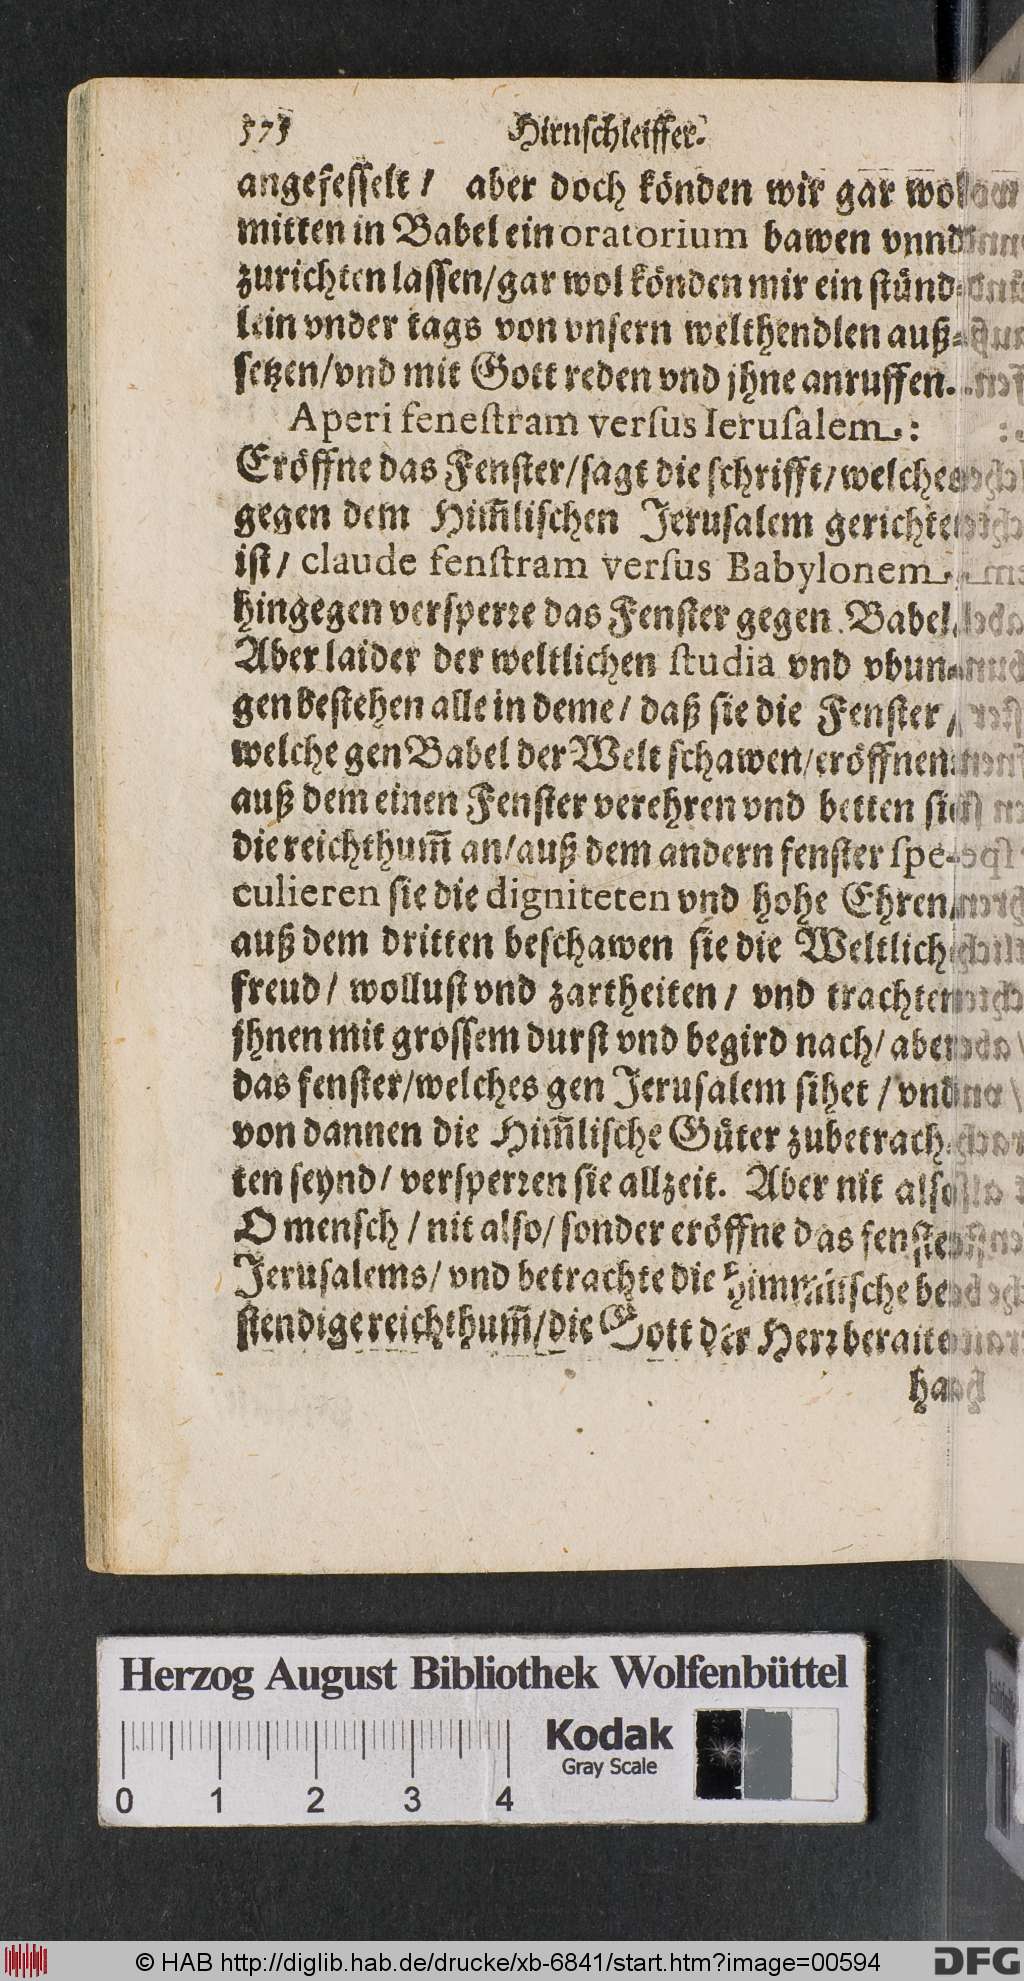 575 Hirnschleiffer.
angefesselt / aber doch könden wir gar wol
mitten in Babel ein oratorium bawen vnnd
zurichten lassen/gar wol könden mir ein stünd-
lein vnder tags von vnsern welthendlen auß-
setzen/vnd mit Gott reden vnd jhne anruffen.
Aperi fenestram versus Ierusalem.:
Eröffne das Fenster/sagt die schrifft/welches
gegen dem Him̃lischen Jerusalem gerichtet
ist/ claude fenstram versus Babylonem.
hingegen versperre das Fenster gegen Babel.
Aber laider der weltlichen studia vnd vbun-
gen bestehen alle in deme/ daß sie die Fenster/
welche gen Babel der Welt schawen/eröffnen:
auß dem einen Fenster verehren vnd betten sie
die reichthum̃ an/auß dem andern fenster spe-
culieren sie die digniteten vnd hohe Ehren/
auß dem dritten beschawen sie die Weltlich
freud/ wollust vnd zartheiten/ vnd trachten
jhnen mit grossem durst vnd begird nach/ aber
das fenster/welches gen Jerusalem sihet / vnd
von dannen die Him̃lische Güter zubetrach-
ten seynd/ versperren sie allzeit. Aber nit also
O mensch / nit also/ sonder eröffne das fenster
Jerusalems/ vnd betrachte die Himmlische be-
stendige reichthum̃/die Gott der Herr beraitet
hat
Herzog August Bibliothek Wolfenbüttel
Kodak
Gray Scale
0 1 2 3 4
© HAB http://diglib.hab.de/drucke/xb-6841/start.htm?image=00594
DFG